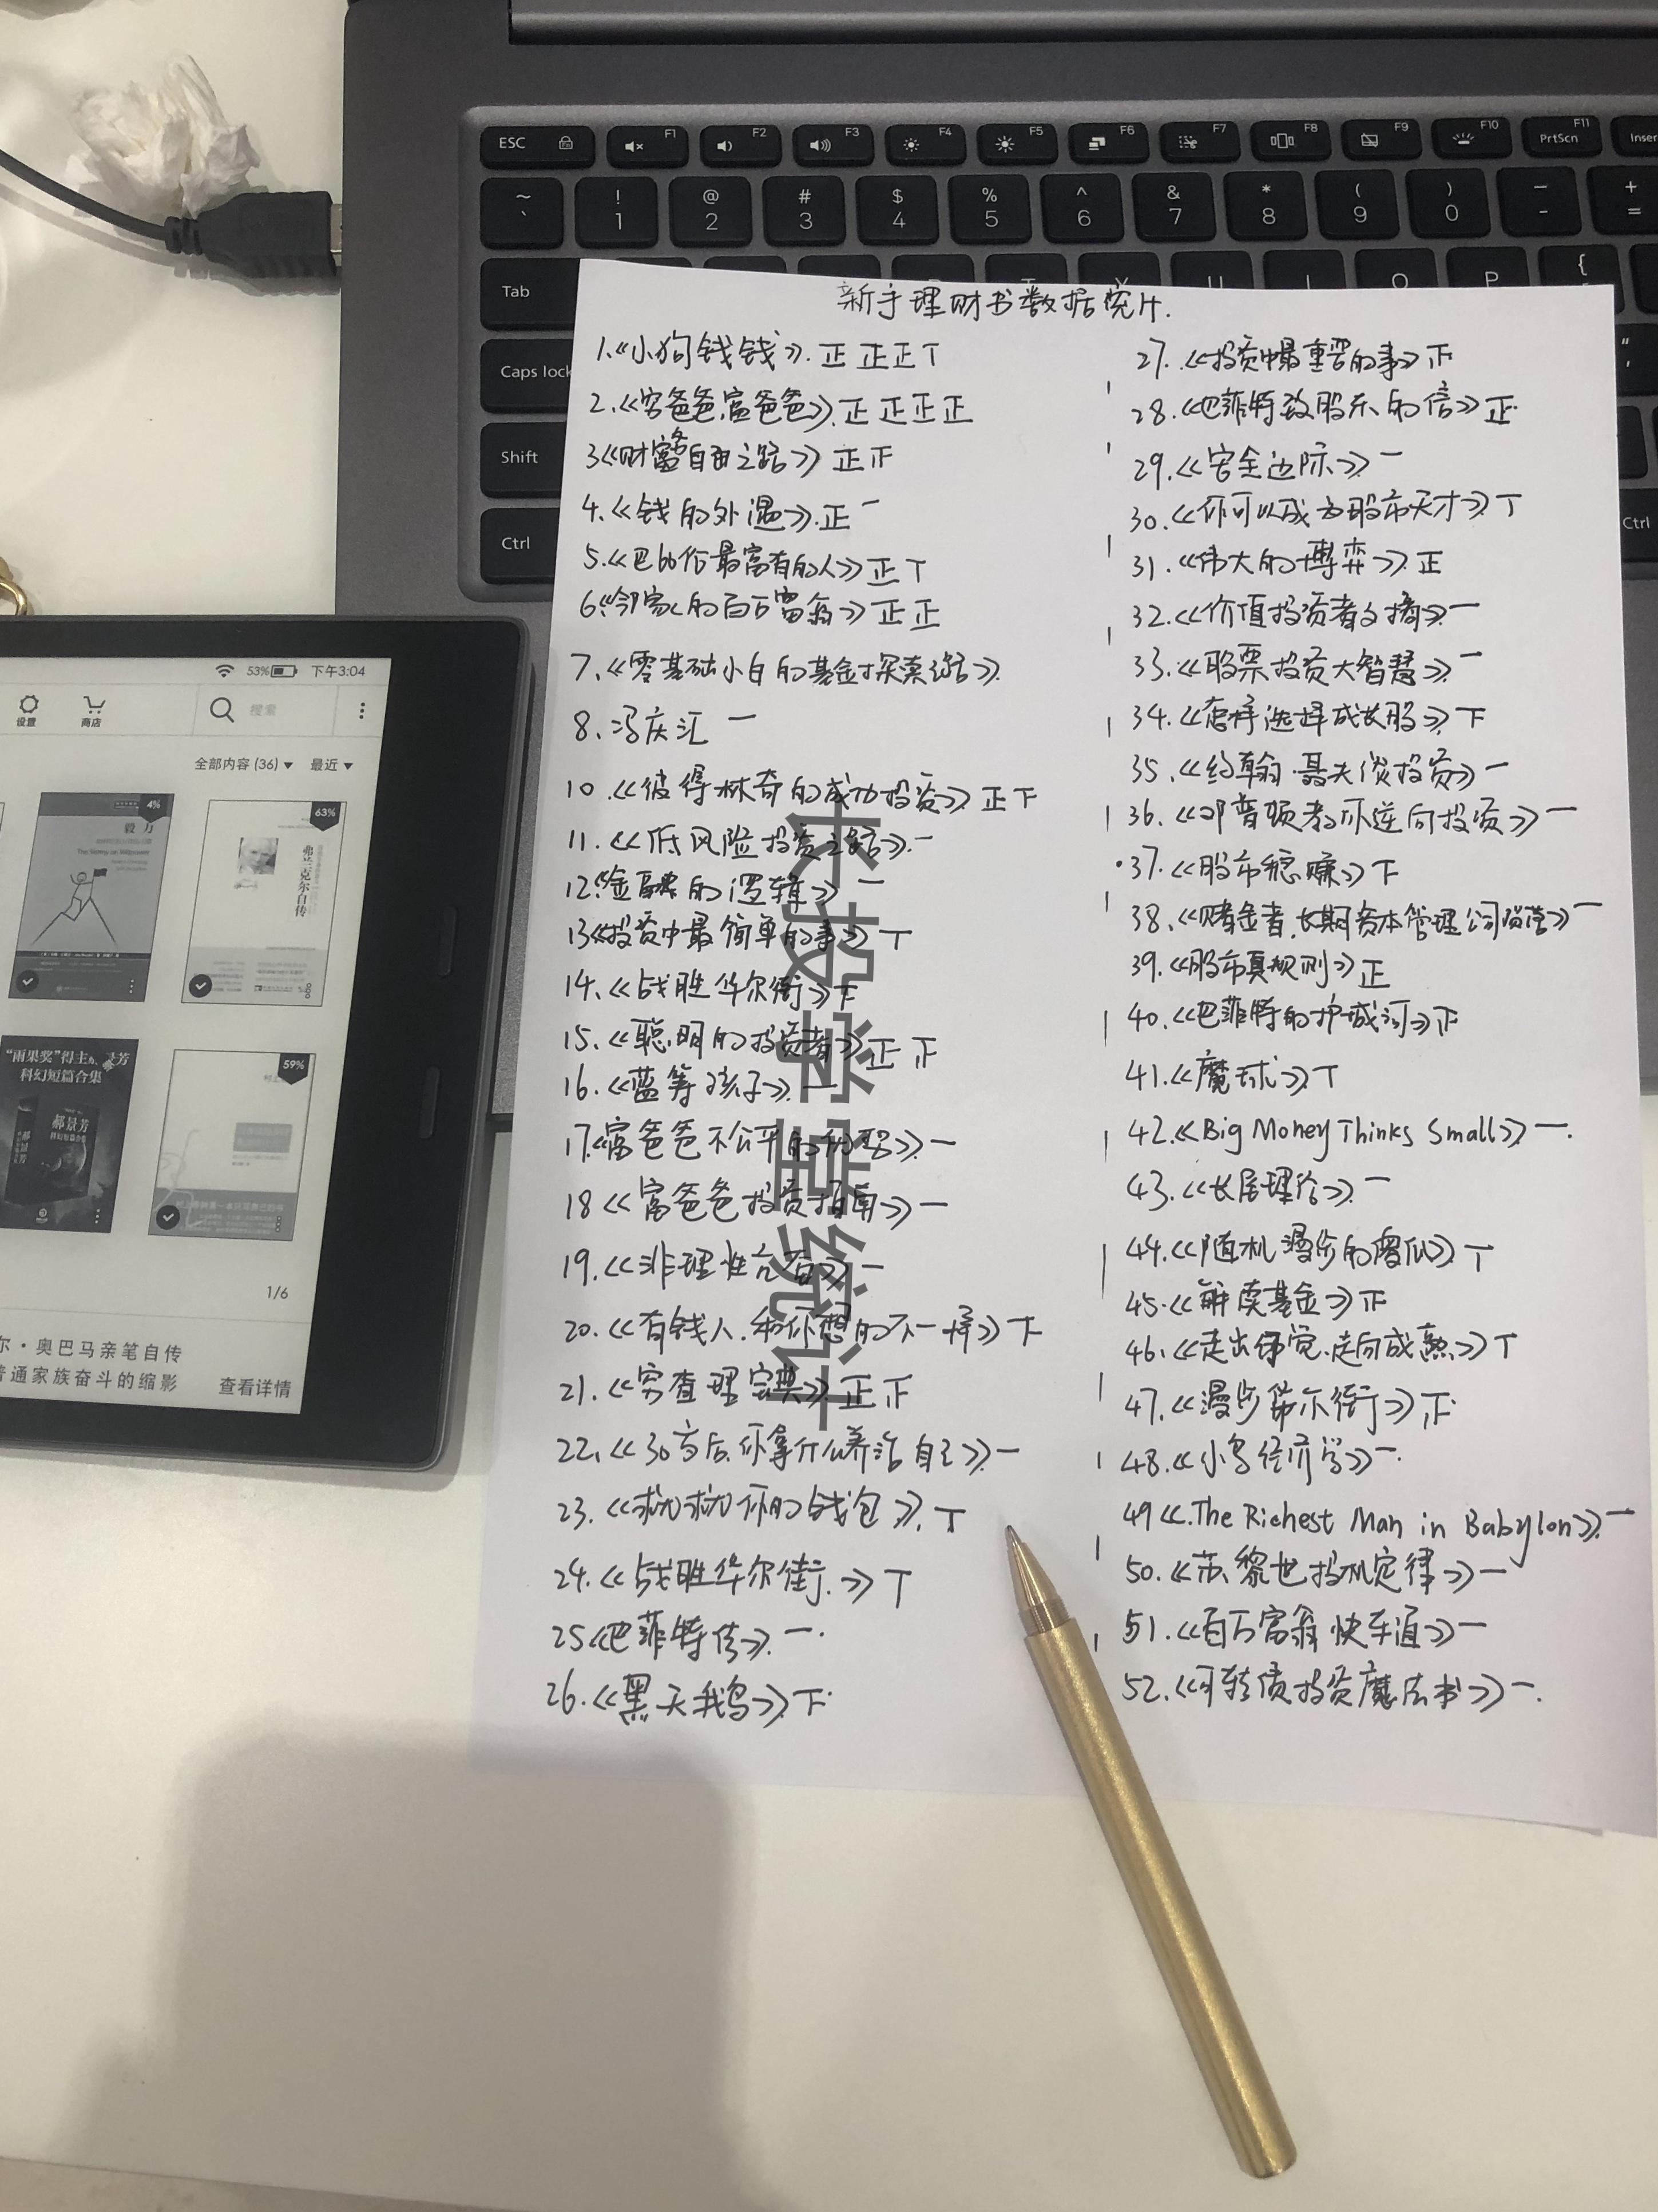 ESC F1 F2 F3 F4 F5 F6 F7 F8 F9 F10 F11
PrtScn Inser
~ ! @ # $ % ^ & * ( ) — +
` 1 2 3 4 5 6 7 8 9 0 - =
Tab U I O P {
Caps lock
Shift
Ctrl
Ctrl
53% 下午3:04
设置 商店 搜索
全部内容 (36) 最近
4%
毅力
63%
弗兰克尔自传
“雨果奖”得主郝景芳
科幻短篇合集
郝景芳
59%
1/6
尔·奥巴马亲笔自传
普通家族奋斗的缩影 查看详情
新手理财书数据统计.
1.《小狗钱钱》.正正正丅
2.《穷爸爸,富爸爸》.正正正正
3《财富自由之路》正下
4.《钱的外遇》.正一
5.《巴比伦最富有的人》正丅
6《邻家的百万富翁》正正
7、《零基础小白的基金探索之路》.
8、冯庆汇 一
10.《彼得林奇的成功投资》正下
11.《低风险投资之路》.一
12《金融的逻辑》一
13《投资中最简单的事》丅
14.《战胜华尔街》下
15.《聪明的投资者》正正
16.《蓝筹孩子》.一
17.《富爸爸不公平的优势》一
18《富爸爸投资指南》一
19.《非理性亢奋》一
20.《有钱人.和你想的不一样》下
21.《穷查理宝典》正下
22.《30岁后你拿什么养活自己》一
23.《救救你的钱包》.丅
24.《战胜华尔街.》丅
25《巴菲特传》.一.
26.《黑天鹅》下.
27.《投资中最重要的事》正
28.《巴菲特致股东的信》正.
29.《安全边际》一
30.《你可以成为股市天才》丅
31.《伟大的博弈》.正
32.《价值投资者文摘》一
33.《股票投资大智慧》一
34.《怎样选择成长股》下
35.《约翰·聂夫谈投资》一
36.《邓普顿教你逆向投资》一
37.《股市稳赚》下
38、《赌金者.长期资本管理公司》一
39.《股市真规则》正
40.《巴菲特的护城河》正
41.《魔球》丅
42.《Big Money Thinks Small》一.
43.《长尾理论》.一
44.《随机漫步的傻瓜》丅
45.《解读基金》正
46.《走出幻觉.走向成熟》丅
47.《漫步华尔街》正.
48.《小岛经济学》一.
49《The Richest Man in Babylon》.一
50.《苏黎世投机定律》一
51.《百万富翁快车道》一
52.《可转债投资魔法书》一.
长投学堂统计